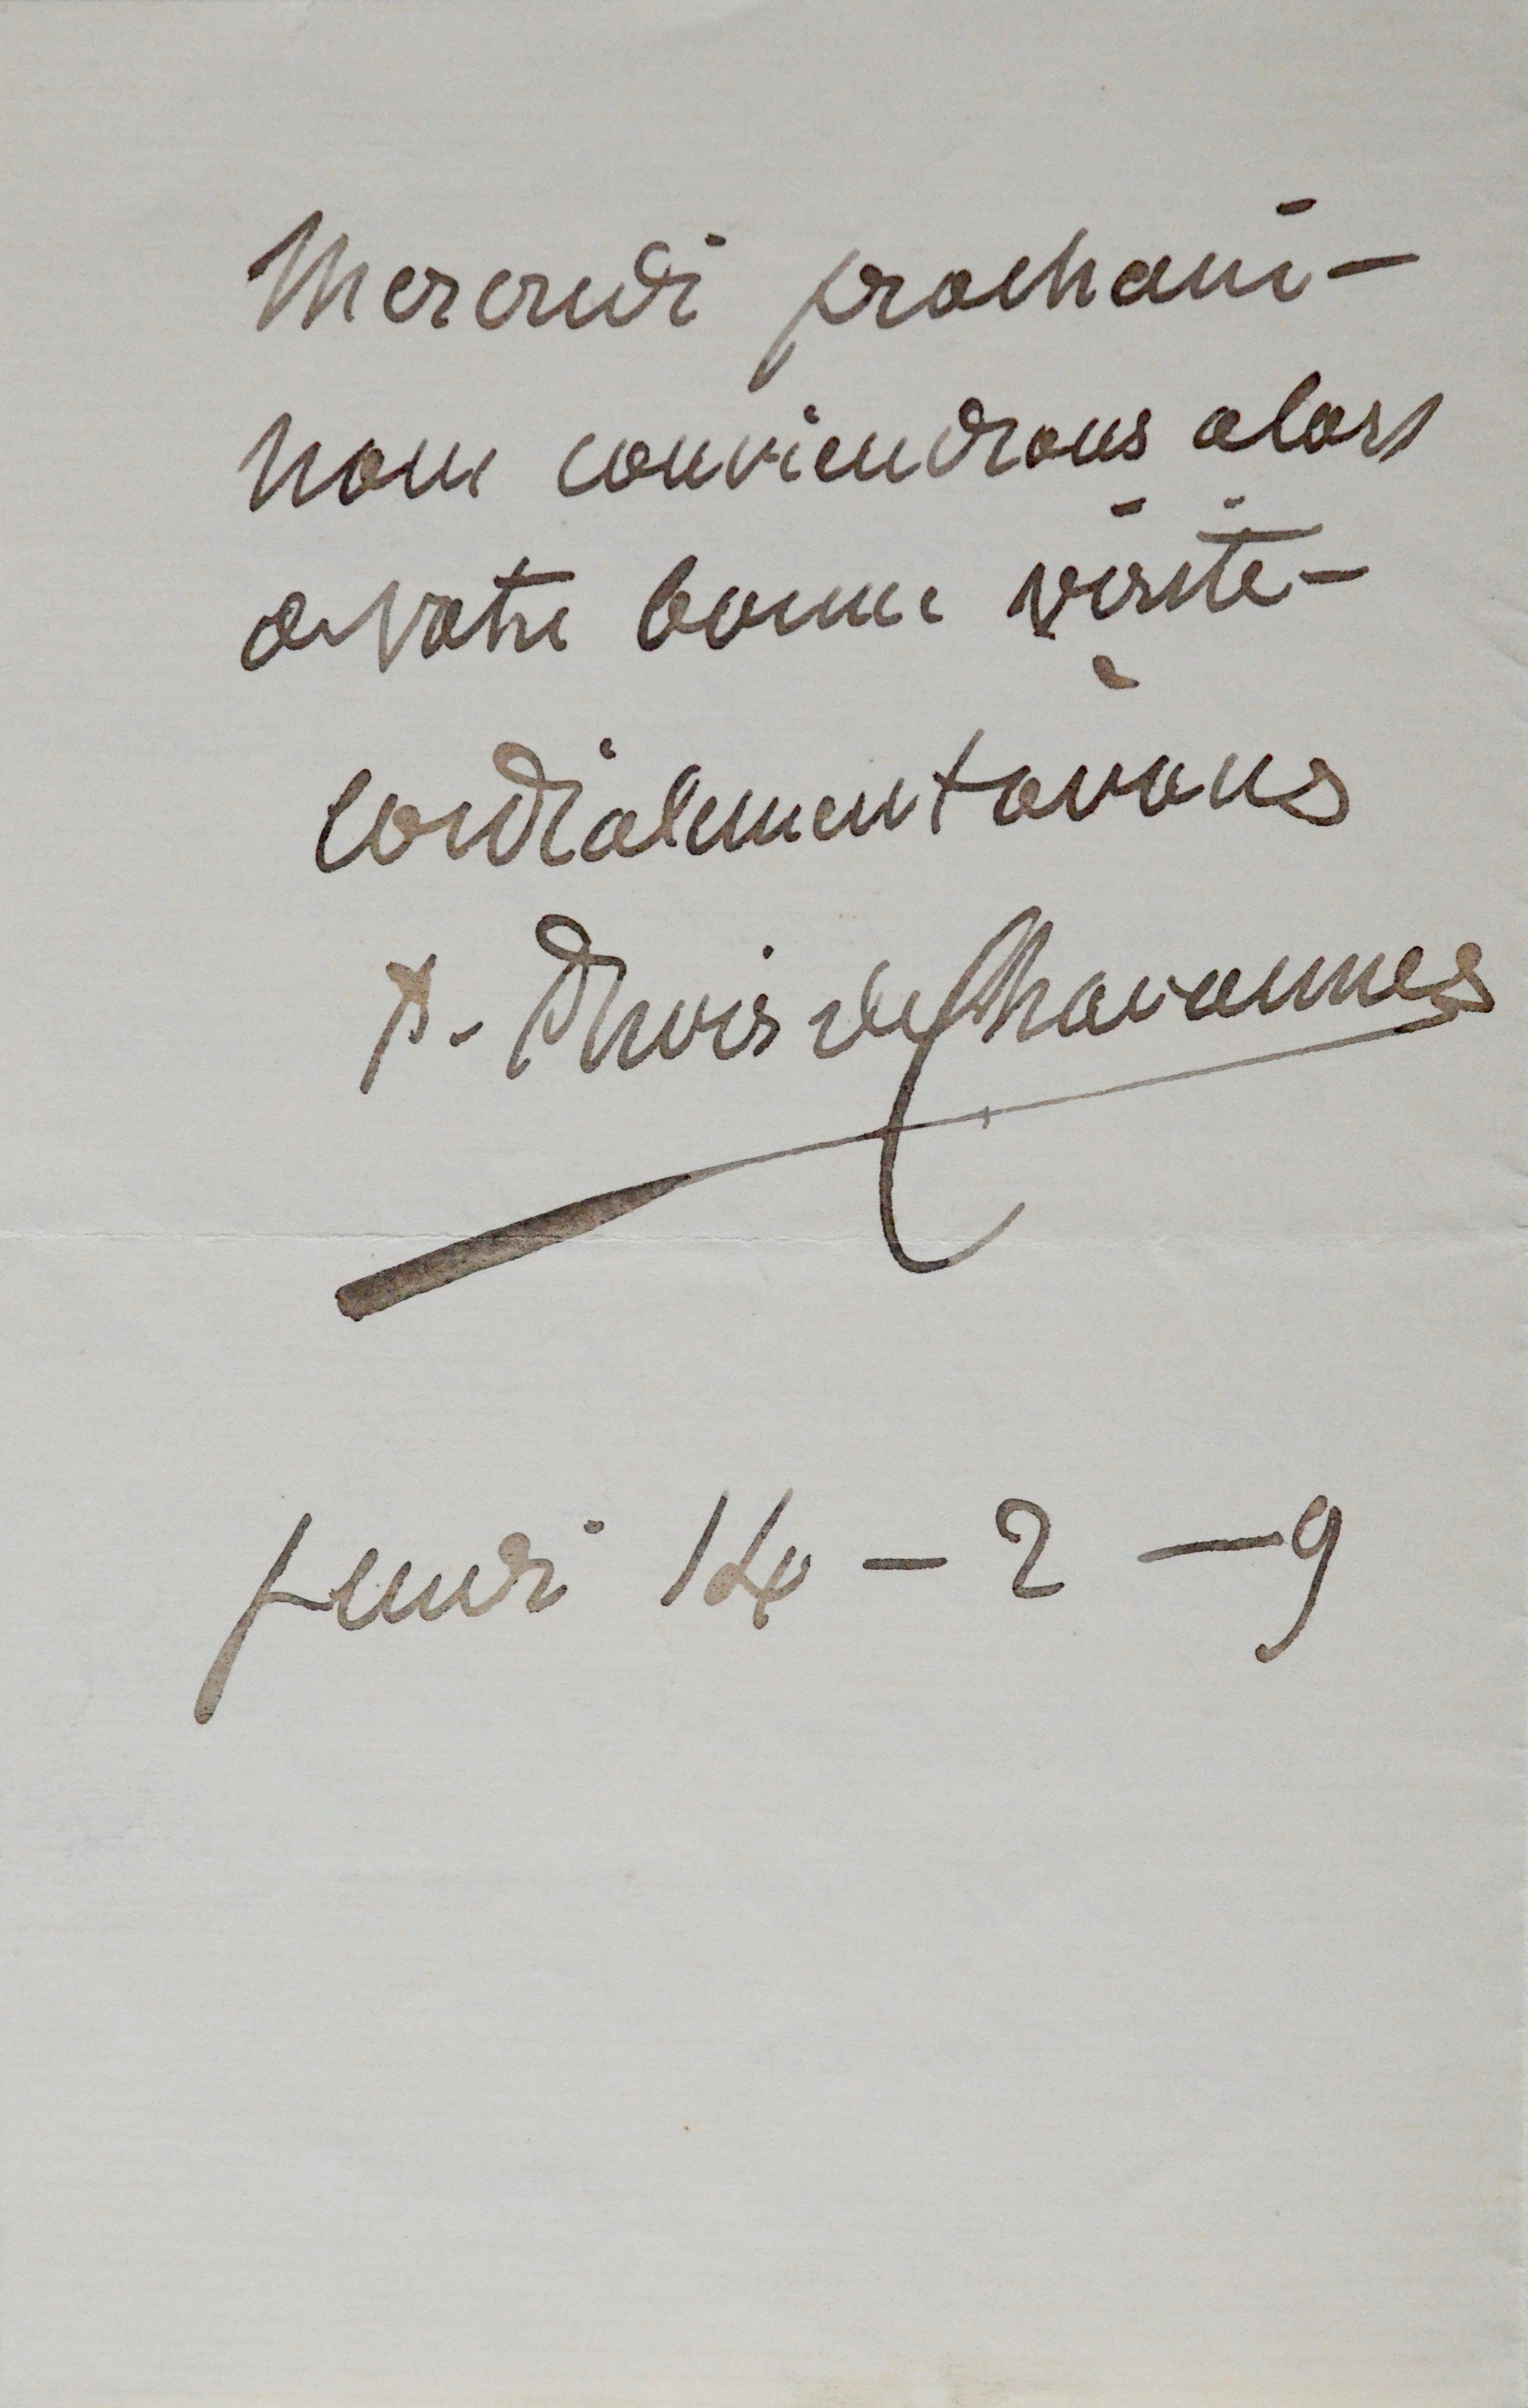 Mercredi prochain -
nous conviendrons alors
de votre bonne visite -
Cordialement à vous
P. Puvis de Chavannes
Jeudi 14 - 2 - 9